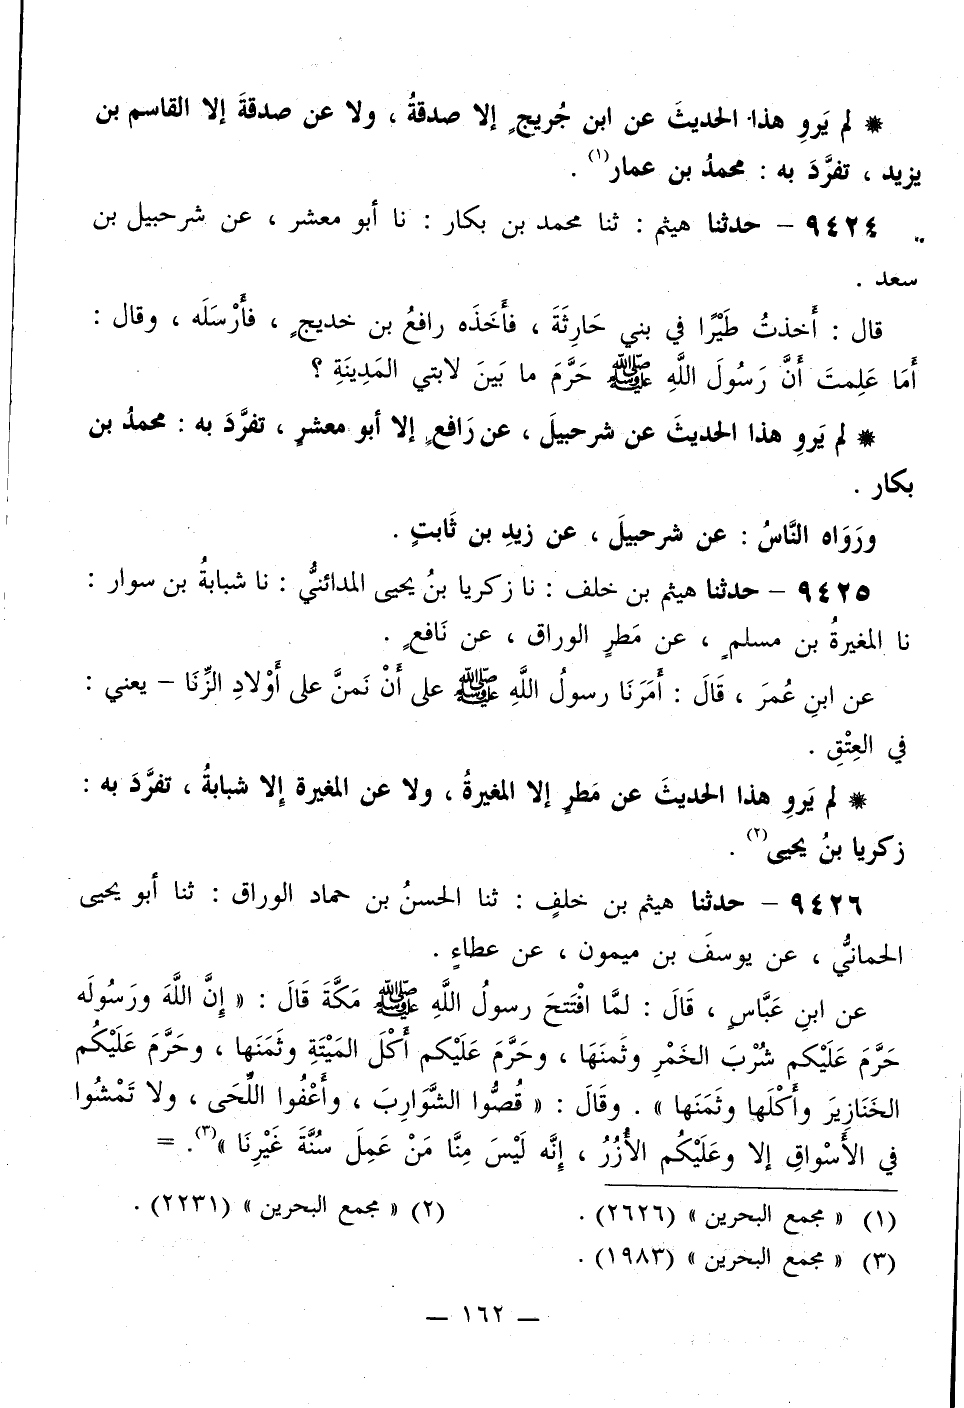 * لم يَروِ هذا الحديثَ عن ابن جُريجٍ إلا صدقةُ ، ولا عن صدقةَ إلا القاسم بن
يزيد ، تفرَّدَ به : محمدُ بن عمار(١) .
٩٤٢٤ - حدثنا هيثم : ثنا محمد بن بكار : نا أبو معشر ، عن شرحبيل بن
سعد .
قال : أَخذتُ طَيْرًا في بني حَارِثَةَ ، فأَخَذَه رافعُ بن خديجٍ ، فأَرْسَلَه ، وقال :
أَمَا عَلِمتَ أَنَّ رَسُولَ اللَّهِ ﷺ حَرَّمَ ما بَينَ لابتي المَدِينَةِ ؟
* لم يَروِ هذا الحديثَ عن شرحبيلَ ، عن رَافعٍ إلا أبو معشرٍ ، تفرَّدَ به : محمدُ بن
بكار .
ورَوَاه النَّاسُ : عن شرحبيلَ ، عن زيدِ بن ثَابتٍ .
٩٤٢٥ - حدثنا هيثم بن خلف : نا زكريا بنُ يحيى المدائنيُّ : نا شبابةُ بن سوار :
نا المغيرةُ بن مسلمٍ ، عن مَطرٍ الوراق ، عن نَافعٍ .
عن ابنِ عُمرَ ، قَالَ : أَمَرَنَا رسولُ اللَّهِ ﷺ على أَنْ نَمنَّ على أَوْلادِ الزِّنَا - يعني :
في العِتْقِ .
* لم يَروِ هذا الحديثَ عن مَطرٍ إلا المغيرةُ ، ولا عن المغيرة إِلا شبابةُ ، تفرَّدَ به :
زكريا بنُ يحيى(٢) .
٩٤٢٦ - حدثنا هيثم بن خلفٍ : ثنا الحسنُ بن حماد الوراق : ثنا أبو يحيى
الحمانيُّ ، عن يوسفَ بن ميمون ، عن عطاءٍ .
عن ابنِ عَبَّاسٍ ، قَالَ : لمَّا افْتَتحَ رسولُ اللَّهِ ﷺ مَكَّةَ قَالَ : « إِنَّ اللَّهَ ورَسُولَه
حَرَّمَ عَلَيْكم شُرْبَ الخَمْرِ وثَمنَهَا ، وحَرَّمَ عَلَيْكم أَكْلَ المَيْتَةِ وثَمَنَها ، وحَرَّمَ عَلَيْكُم
الخَنَازِيرَ وأَكْلَها وثَمَنَها » . وقَالَ : « قُصُّوا الشَّوَارِبَ ، وأَعْفُوا اللِّحَى ، ولا تَمْشُوا
في الأَسْواقِ إلا وعَلَيْكُم الأُزُرُ ، إِنَّه لَيْسَ مِنَّا مَنْ عَمِلَ سُنَّةَ غَيْرِنَا »(٣). =
(١) « مجمع البحرين » (٢٦٢٦) . (٢) « مجمع البحرين » (٢٢٣١) .
(٣) « مجمع البحرين » (١٩٨٣) .
— ١٦٢ —